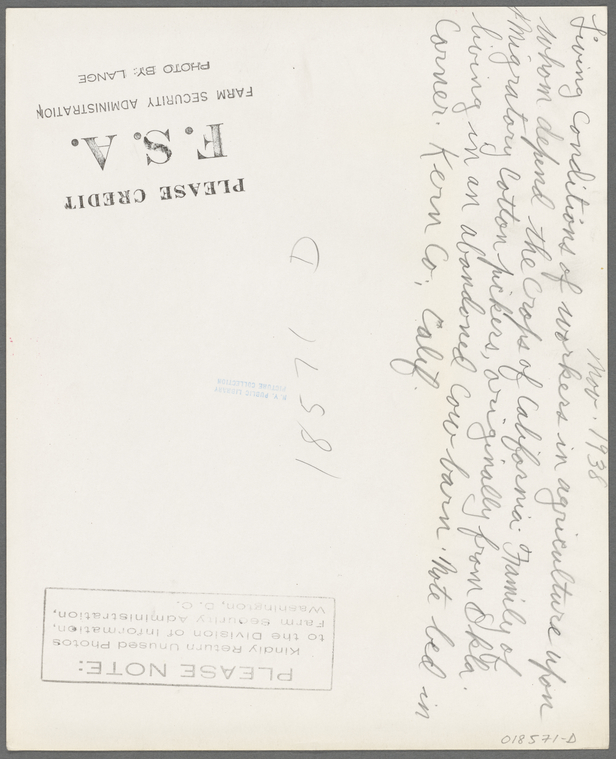 Nov. 1938
Living conditions of workers in agriculture upon
whom depend the crops of California. Family of
Migratory cotton pickers, originally from Okla.
living in an abandoned cow barn. Note bed in
corner. Kern Co, Calif.
18571 D
PLEASE CREDIT
F.S.A.
FARM SECURITY ADMINISTRATION
PHOTO BY: LANGE
N. Y. PUBLIC LIBRARY
PICTURE COLLECTION
PLEASE NOTE:
Kindly Return Unused Photos
to the Division of Information,
Farm Security Administration,
Washington, D. C.
018571-D